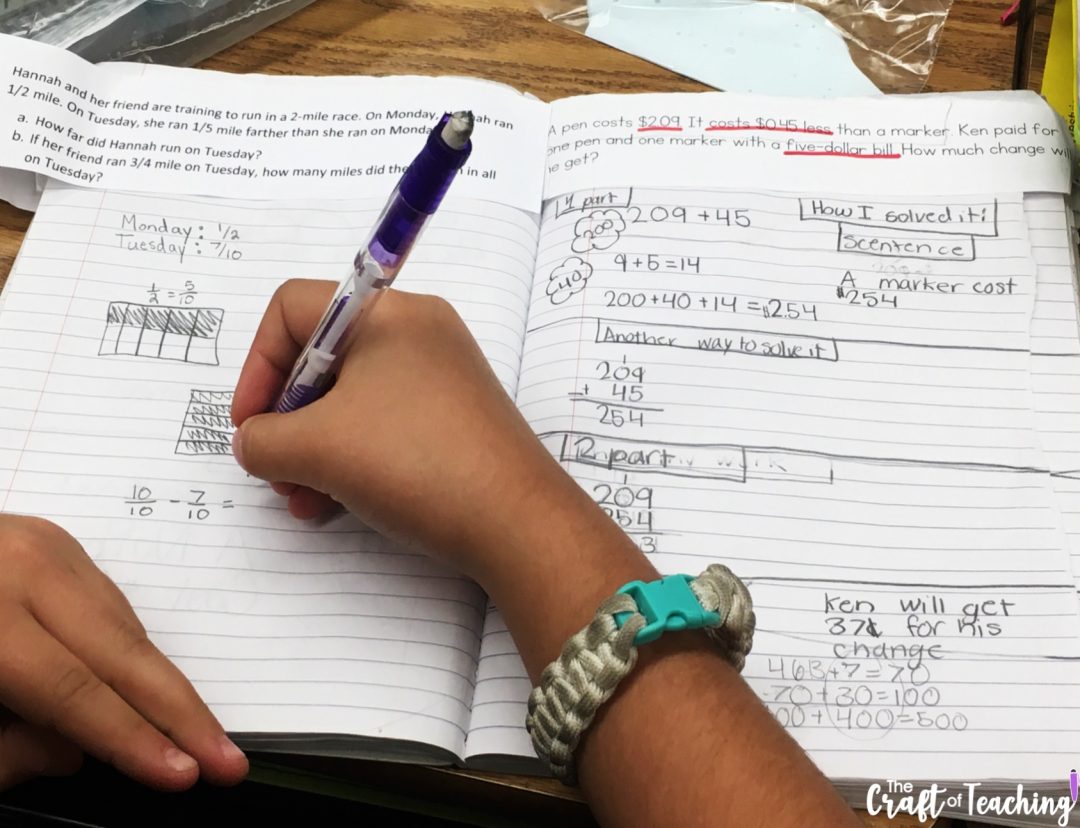 Hannah and her friend are training to run in a 2-mile race. On Monday, ah ran
1/2 mile. On Tuesday, she ran 1/5 mile farther than she ran on Monda
a. How far did Hannah run on Tuesday?
b. If her friend ran 3/4 mile on Tuesday, how many miles did the in all
on Tuesday?
Monday: 1/2
Tuesday: 7/10
1/2 = 5/10
10/10 - 7/10 =
A pen costs $2.09. It costs $0.45 less than a marker. Ken paid for
one pen and one marker with a five-dollar bill. How much change wi
he get?
1 part
209 + 45
200
9+5=14
40
200+40+14=$2.54
How I solved it:
Scentence
A marker cost
$254
Another way to solve it
1
209
+ 45
254
2 part
1
209
254
3
Ken will get
37¢ for his
change
463+7=70
70+30=100
00+400=500
The
Craft of Teaching